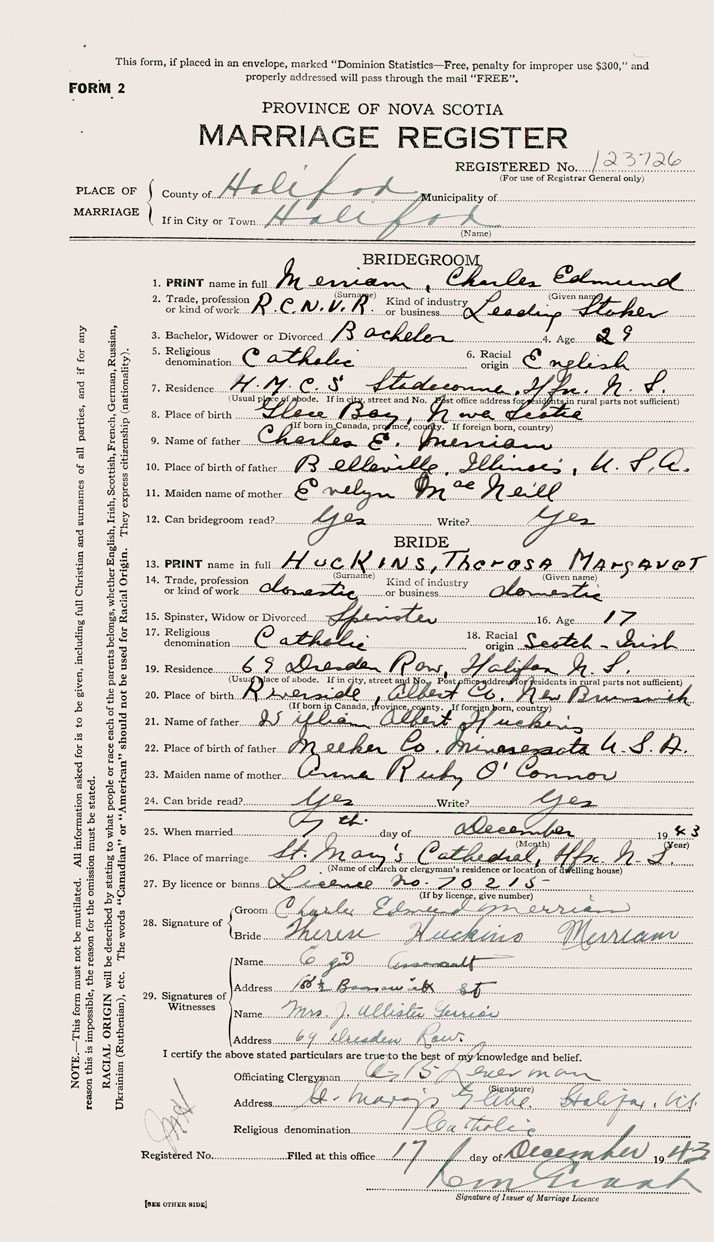 This form, if placed in an envelope, marked "Dominion Statistics—Free, penalty for improper use $300," and
properly addressed will pass through the mail "FREE".
FORM 2
PROVINCE OF NOVA SCOTIA
MARRIAGE REGISTER
REGISTERED No. 123726
(For use of Registrar General only)
PLACE OF MARRIAGE
County of Halifax Municipality of
If in City or Town Halifax
(Name)
BRIDEGROOM
1. PRINT name in full Merriam, Charles Edmund
(Surname) (Given name)
2. Trade, profession or kind of work R.C.N.V.R. Kind of industry or business Leading Stoker
3. Bachelor, Widower or Divorced Bachelor 4. Age 29
5. Religious denomination Catholic 6. Racial origin English
7. Residence H.M.C.S Stadacona, Hfx. N.S.
(Usual place of abode. If in city, street and No. Post office address for residents in rural parts not sufficient)
8. Place of birth Glace Bay, Nova Scotia
(If born in Canada, province, county. If foreign born, country)
9. Name of father Charles E. Merriam
10. Place of birth of father Belleville, Illinois, U.S.A.
11. Maiden name of mother Evelyn MacNeill
12. Can bridegroom read? Yes Write? Yes
BRIDE
13. PRINT name in full HUCKINS, THERESA MARGARET
(Surname) (Given name)
14. Trade, profession or kind of work domestic Kind of industry or business domestic
15. Spinster, Widow or Divorced Spinster 16. Age 17
17. Religious denomination Catholic 18. Racial origin Scotch-Irish
19. Residence 69 Dresden Row, Halifax N.S.
(Usual place of abode. If in city, street and No. Post office address for residents in rural parts not sufficient)
20. Place of birth Riverside, Albert Co. New Brunswick
(If born in Canada, province, county. If foreign born, country)
21. Name of father William Albert Huckins
22. Place of birth of father Meeker Co. Minnesota U.S.A.
23. Maiden name of mother Anna Ruby O'Connor
24. Can bride read? Yes Write? Yes
25. When married 7th day of December 1943
(Month) (Year)
26. Place of marriage St. Mary's Cathedral, Hfx. N.S.
(Name of church or clergyman's residence or location of dwelling house)
27. By licence or banns Licence No. 70215
(If by licence, give number)
28. Signature of
Groom Charles Edmund Merriam
Bride Therese Huckins Merriam
29. Signatures of Witnesses
Name
Address St
Name Mrs. J. Allister
Address 69 Dresden Row.
I certify the above stated particulars are true to the best of my knowledge and belief.
Officiating Clergyman
(Signature)
Address St. Mary's Glebe Halifax, N.S.
Religious denomination Catholic
Registered No. Filed at this office 17 day of December 1943
Signature of Issuer of Marriage Licence
[SEE OTHER SIDE]
NOTE.—This form must not be mutilated. All information asked for is to be given, including full Christian and surnames of all parties, and if for any
reason this is impossible, the reason for the omission must be stated.
RACIAL ORIGIN will be described by stating to what people or race each of the parents belongs, whether English, Irish, Scottish, French, German, Russian,
Ukrainian (Ruthenian), etc. The words "Canadian" or "American" should not be used for Racial Origin. They express citizenship (nationality).